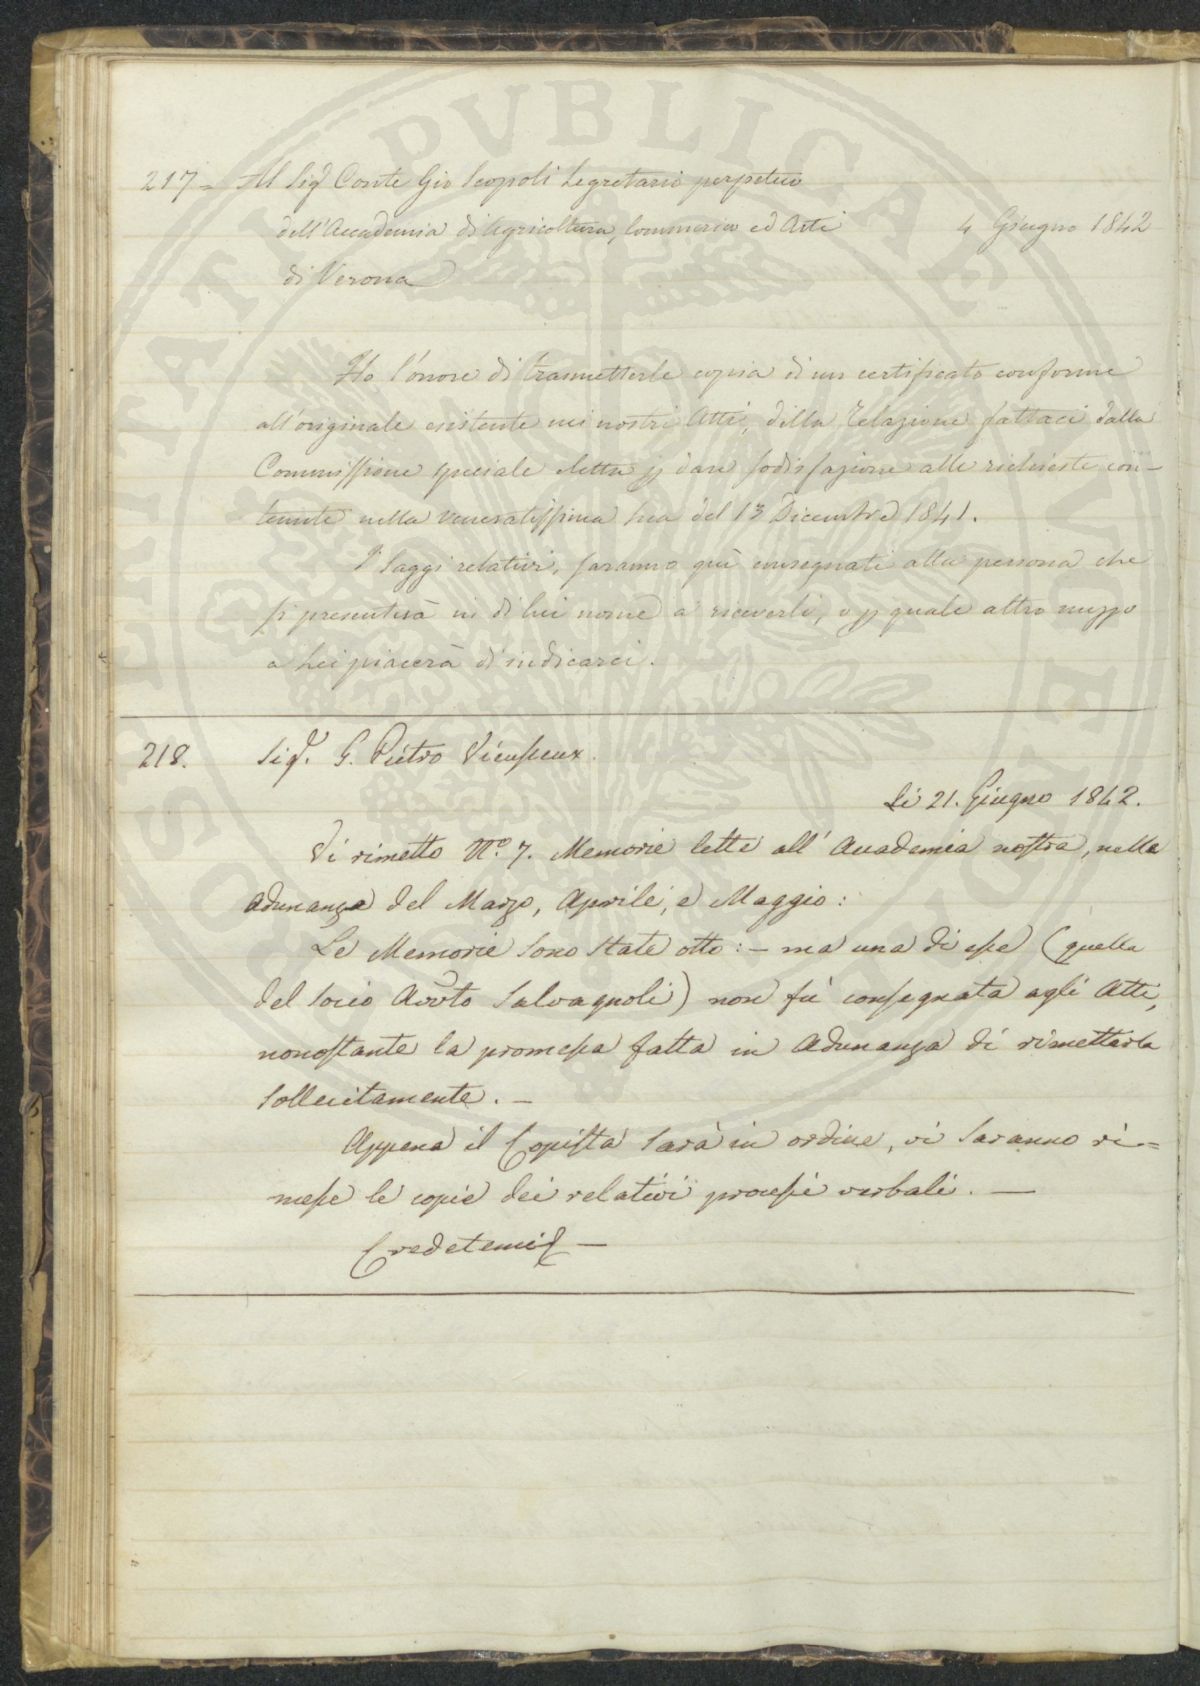 217 = Al Sig.r Conte Gio Scopoli Segretario perpetuo
dell'Accademia di Agricoltura, Commercio ed Arti
4 Giugno 1842
di Verona
Ho l'onore di trasmetterle copia di un certificato conforme
all'originale esistente nei nostri Atti, della Relazione fattaci dalla
Commissione speciale eletta p dare sodisfazione alle richieste con-
tenute nella veneratissima sua del 13 Dicembre 1841.
I Saggi relativi, saranno quì consegnati alla persona che
si presenterà in di lui nome a riceverli, o p quale altro mezzo
a Lei piacerà d'indicarci.
218. Sig.r G. Pietro Vieusseux.
Li 21. Giugno 1842.
Vi rimetto N.o 7. Memorie lette all'Accademia nostra, nelle
adunanze del Marzo, Aprile, e Maggio:
Le Memorie sono state otto: – ma una di esse (quella
del Socio Avv.to Salvagnoli) non fù consegnata agli Atti,
nonostante la promessa fatta in Adunanza di rimetterla
sollecitamente. –
Appena il Copista sarà in ordine, vi saranno ri=
messe le copie dei relativi processi verbali. —
Credetemi —
PUBLICAE